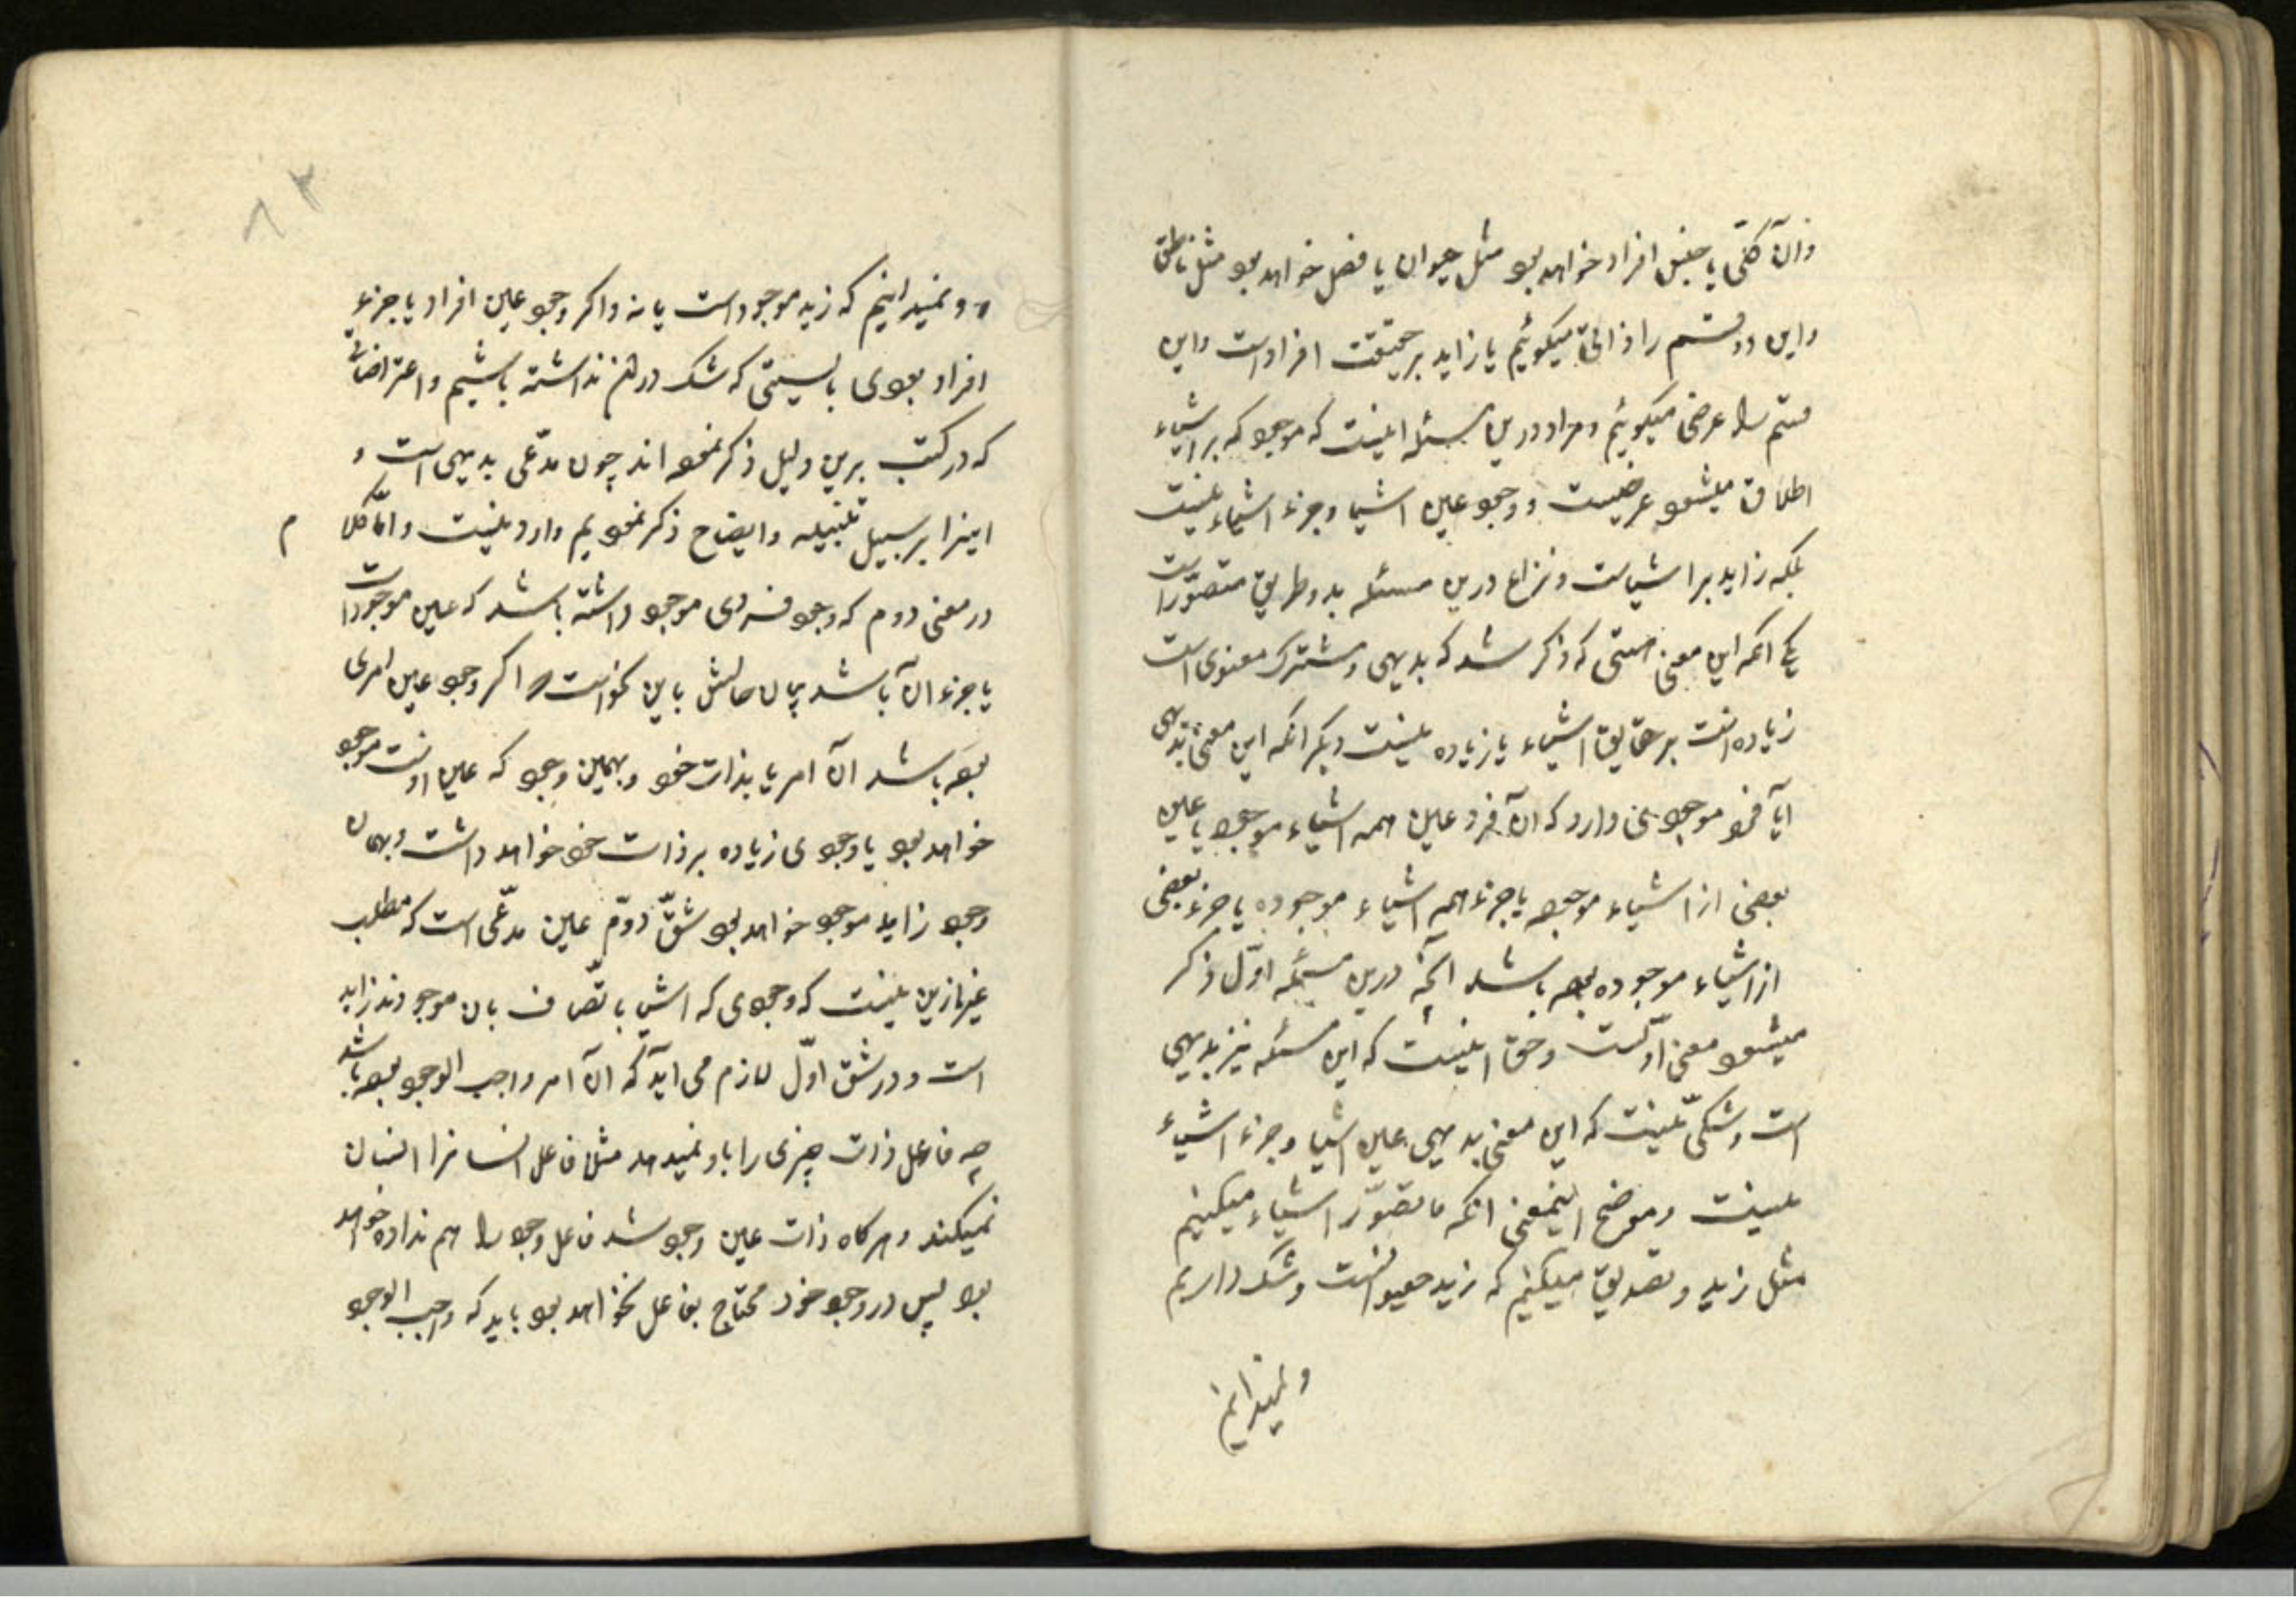 وان کلّی یا جنس افراد خواهد بود مثل حیوان یا فصل خواهد بود مثل ناطق
واین دو قسم را ذاتی میکوئیم یا زاید بر حقیقت افراد است واین
قسم را عرضی میکوئیم ومراد درین مسئله اینست که موجود که بر اشیاء
اطلاق میشود عرضیست و وجود عین اشیا وجزء اشیاء نیست
بلکه زاید بر اشیاست ونزاع درین مسئله بدو طریق متصوّر است
یکی انکه این معنی هستی که ذکر شد که بدیهی ومشترک معنوی است
زیاده است بر حقایق اشیاء یا زیاده نیست دیکر انکه این معنی بدیهی
آیا فرد موجودی دارد که آن فرد عین همه اشیاء موجود یا عین
بعضی از اشیاء موجوده یا جزء همه اشیاء موجوده یا جزء بعضی
از اشیاء موجوده بوده باشد آنچه درین مسئله اوّل ذکر
میشود معنی اوّلست وحق اینست که این مسئله نیز بدیهی
است وشکّی نیست که این معنی بدیهی عین اشیا وجزء اشیاء
نیست وموضح اینمعنی انکه ما تصوّر اشیاء میکنیم
مثل زید وتصدیق میکنیم که زید حیوانست وشک داریم
ونمیدانیم
۸۳
ونمیدانیم که زید موجود است یا نه واکر وجود عین افراد یا جزء
افراد بودی بایستی که شک در ان نداشته باشیم واعتراضاتی
که در کتب برین دلیل ذکر نموده اند چون مدّعی بدیهی است و
اینرا بر سبیل تنبیه وایضاح ذکر نمودیم وارد نیست وامّا کلام
در معنی دوم که وجود فردی موجود داشته باشد که عین موجودات
یا جزء ان باشد بیان حالش باین نحو است که اکر وجود عین امری
بوده باشد ان امر یا بذات خود وبهمین وجود که عین اوست موجود
خواهد بود یا وجودی زیاده بر ذات خود خواهد داشت وبهمان
وجود زاید موجود خواهد بود شقّ دوّم عین مدّعی است که مطلب
غیر ازین نیست که وجودی که اشیا باتّصاف بان موجودند زاید
است ودر شق اوّل لازم می اید که ان امر واجب الوجود بوده باشد
چه فاعل ذات چیزی را باو نمیدهد مثلا فاعل انسانرا انسان
نمیکند وهرکاه ذات عین وجود شد فاعل وجود را هم نداده خواهد
بود پس در وجود خود محتاج بفاعل نخواهد بود باید که واجب الوجود